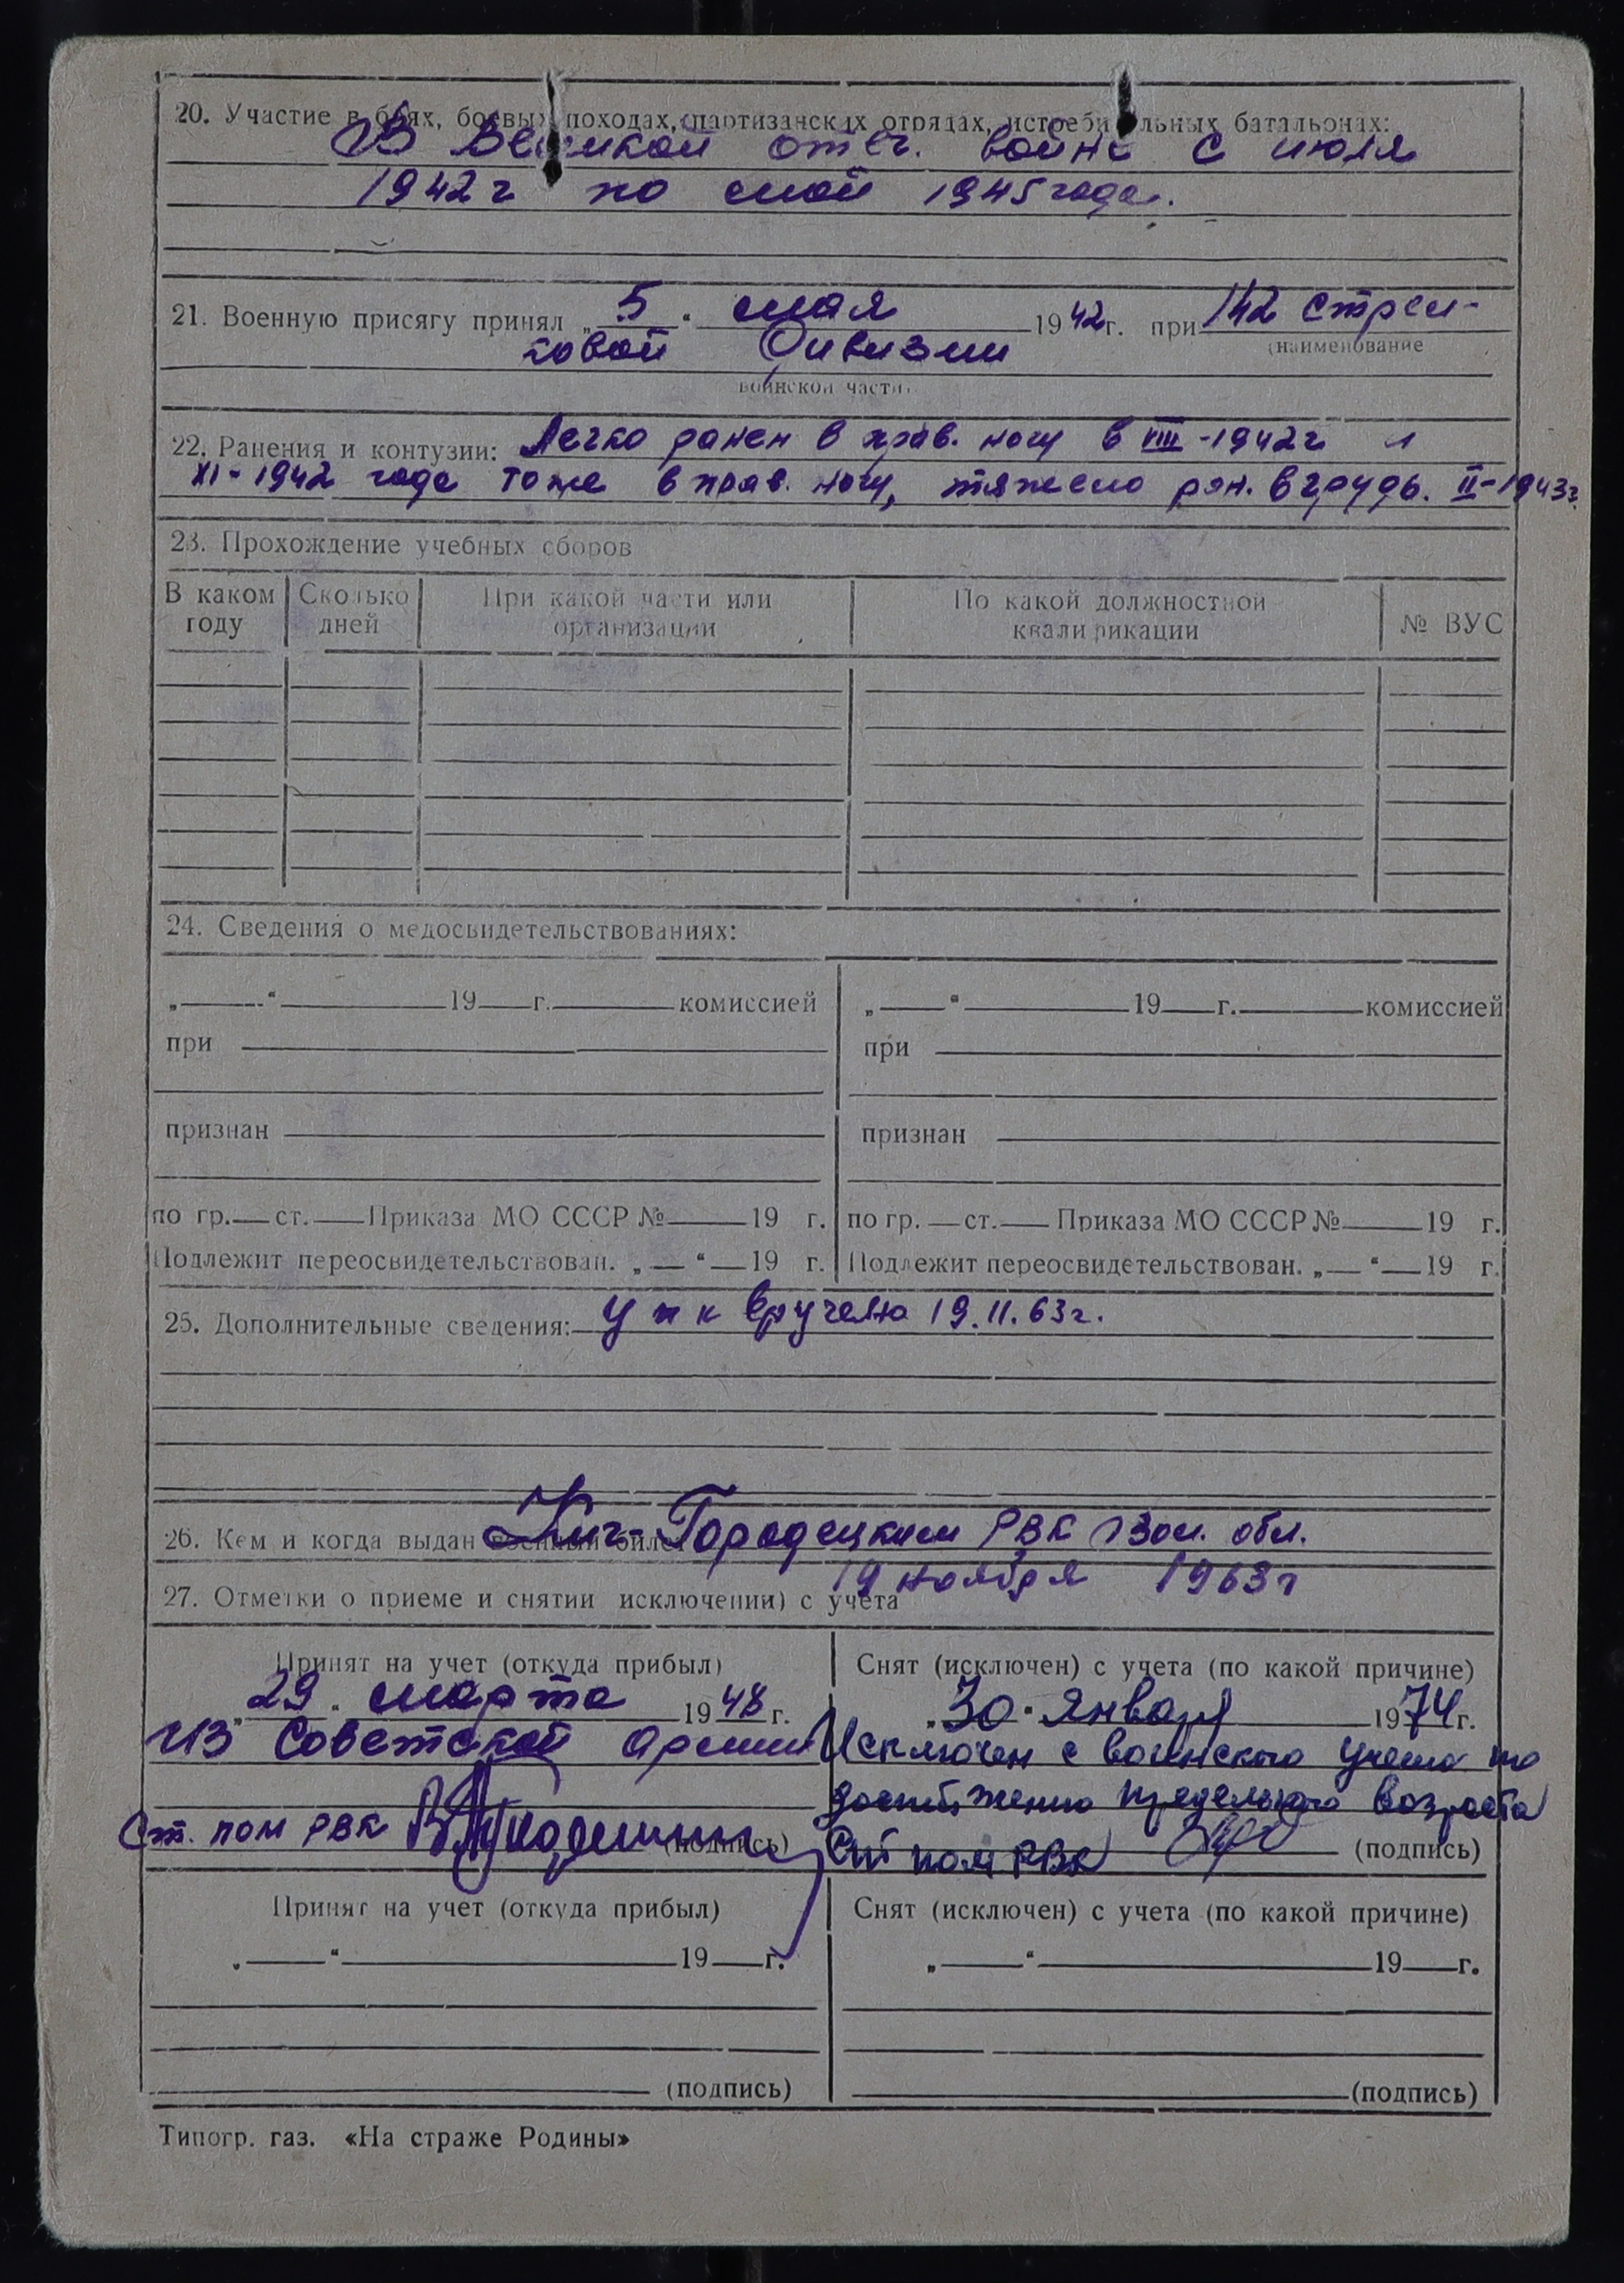 20. Участие в боях, боевых походах, партизанских отрядах, истребительных батальонах:
В Великой отеч. войне с июля
1942г по май 1945 года.
21. Военную присягу принял „5“ мая 1942г. при 142 стрел-
(наименование
ковой дивизии
воинской части)
22. Ранения и контузии: Легко ранен в прав. ногу в VIII-1942г и
XI-1942 года тоже в прав. ногу, тяжело ран. в грудь. II-1943г.
23. Прохождение учебных сборов
В каком году Сколько дней При какой части или организации По какой должностной квалификации № ВУС
24. Сведения о медосвидетельствованиях:
„ “ 19 г. комиссией „ “ 19 г. комиссией
при при
признан признан
по гр. ст. Приказа МО СССР № 19 г. по гр. ст. Приказа МО СССР № 19 г.
Подлежит переосвидетельствован. „ “ 19 г. Подлежит переосвидетельствован. „ “ 19 г.
25. Дополнительные сведения: упк вручено 19.11.63г.
26. Кем и когда выдан военный билет Кич-Городецким РВК Вол. обл.
19 ноября 1963г
27. Отметки о приеме и снятии исключении) с учета
Принят на учет (откуда прибыл) Снят (исключен) с учета (по какой причине)
„29“ марта 1948г. „30“ января 1974г.
из Советской Армии Исключен с воинского учета по
достижению предельного возраста
Ст. пом РВК (подпись) Ст пом РВК (подпись)
Принят на учет (откуда прибыл) Снят (исключен) с учета (по какой причине)
„ “ 19 г. „ “ 19 г.
(подпись) (подпись)
Типогр. газ. «На страже Родины»